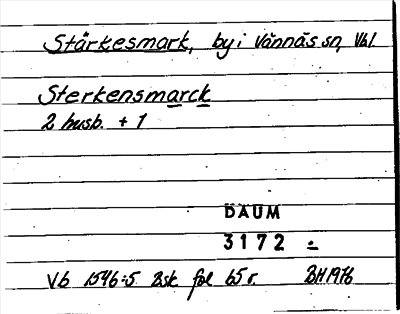 Stärkesmark, by i Vännäs sn, Vbl.
Sterkensmarck
2 husb. + 1
DAUM
3172 -
Vb 1546:5 Bsk fol 65 r. BH 1976